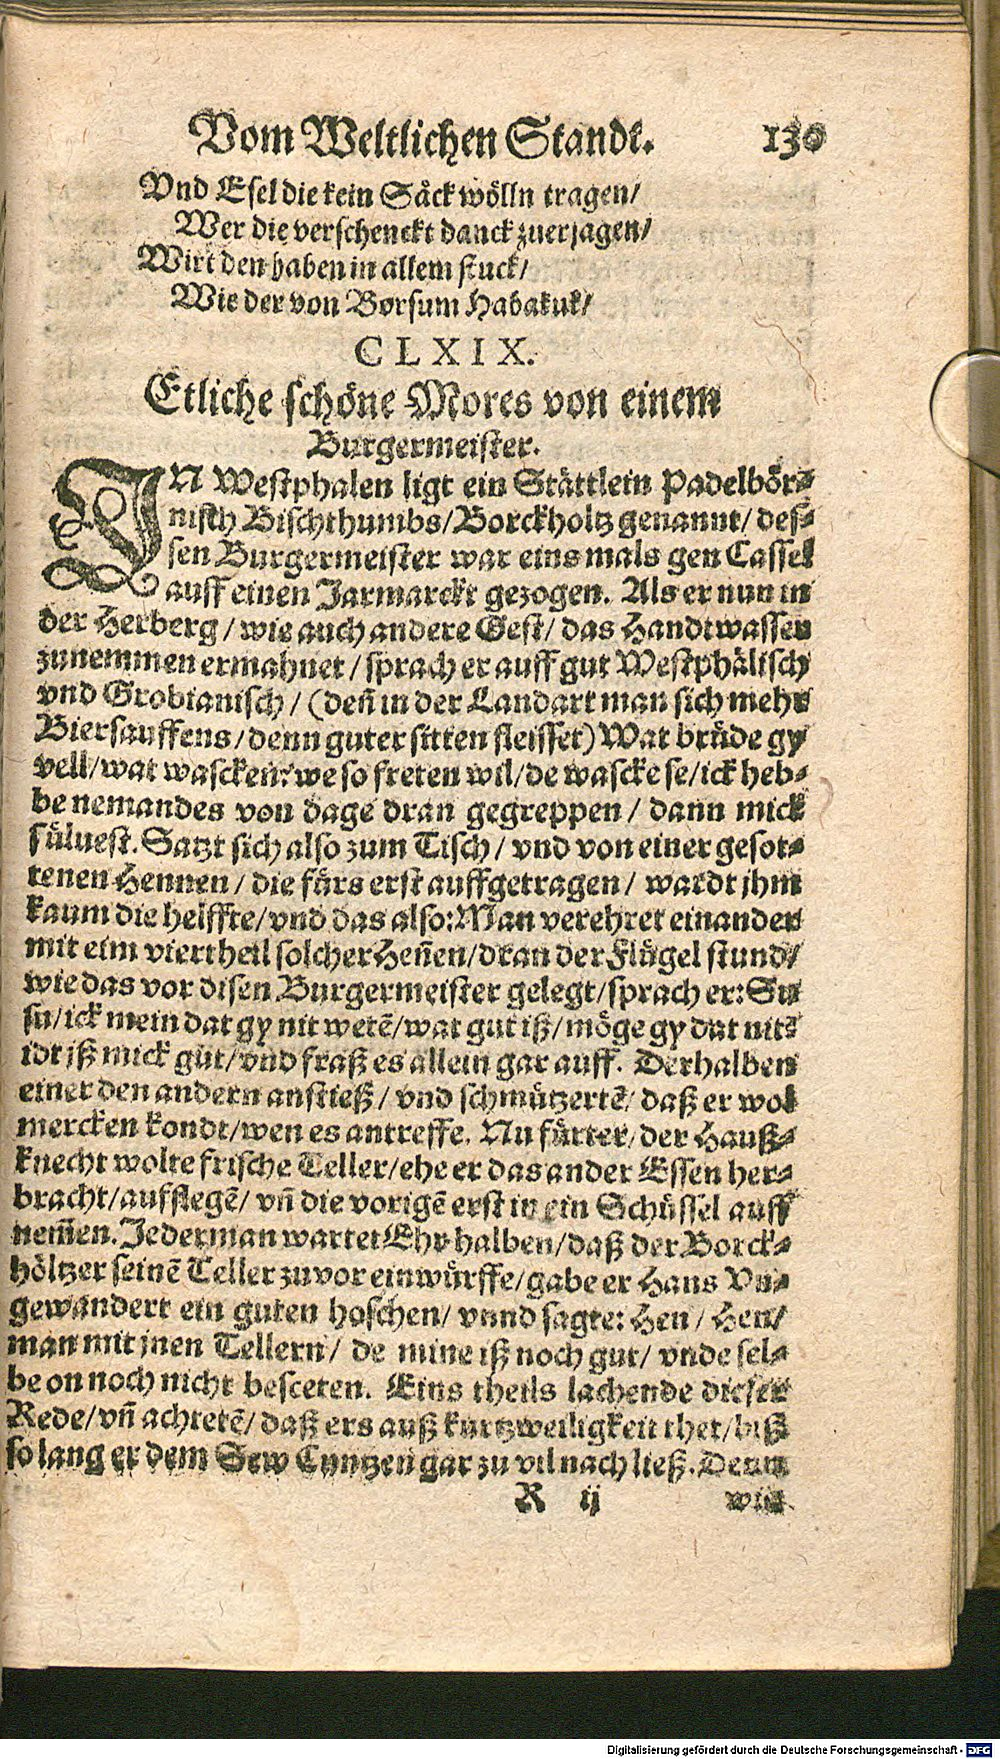 Vom Weltlichen Standt. 130
Vnd Esel die kein Säck wölln tragen/
Wer die verschenckt danck zuerjagen/
Wirt den haben in allem stuck/
Wie der von Borsum Habakuk/
CLXIX.
Etliche schöne Mores von einem
Burgermeister.
IN Westphalen ligt ein Stättlein Padelbör-
nisch Bischthumbs/Borckholtz genannt/ des-
sen Burgermeister war eins mals gen Cassel
auff einen Jarmarckt gezogen. Als er nun in
der Herberg/ wie auch andere Gest/ das Handtwasser
zunemmen ermahnet/ sprach er auff gut Westphälisch
vnd Grobianisch/ (deñ in der Landart man sich mehr
Biersauffens/denn guter sitten fleisset) Wat brüde gy
vell/wat wascken? we so freten wil/de wascke se/ick heb-
be nemandes von dage dran gegreppen/ dann mick
süluest. Satzt sich also zum Tisch/ vnd von einer gesot-
tenen Hennen/ die fürs erst auffgetragen/ wardt jhm
kaum die helffte/vnd das also: Man verehret einander
mit eim viertheil solcher Heñen/dran der Flügel stund/
wie das vor disen Burgermeister gelegt/sprach er: Su
su/ick mein dat gy nit wetẽ/wat gut iß/möge gy dat nit?
idt iß mick gut/vnd fraß es allein gar auff. Derhalben
einer den andern anstieß/ vnd schmützertẽ/ daß er wol
mercken kondt/wen es antreffe. Nu fürter/der Hauß-
knecht wolte frische Teller/ehe er das ander Essen her-
bracht/auflegẽ/ vñ die vorigẽ erst in ein Schüssel auff
nem̃en. Jederman wartet Ehr halben/daß der Borck-
höltzer seinẽ Teller zuvor einwürffe/gabe er Hans Vn-
gewandert ein guten hoschen/ vnnd sagte: Hen/ Hen/
man mit jnen Tellern/ de mine iß noch gut/ vnde sel-
be on noch nicht besceten. Eins theils lachende dieser
Rede/vñ achtetẽ/ daß ers auß kurtzweiligkeit thet/biß
so lang er dem Sew Cuntzen gar zu vil nach ließ. Denn
R ij
Digitalisierung gefördert durch die Deutsche Forschungsgemeinschaft - DFG